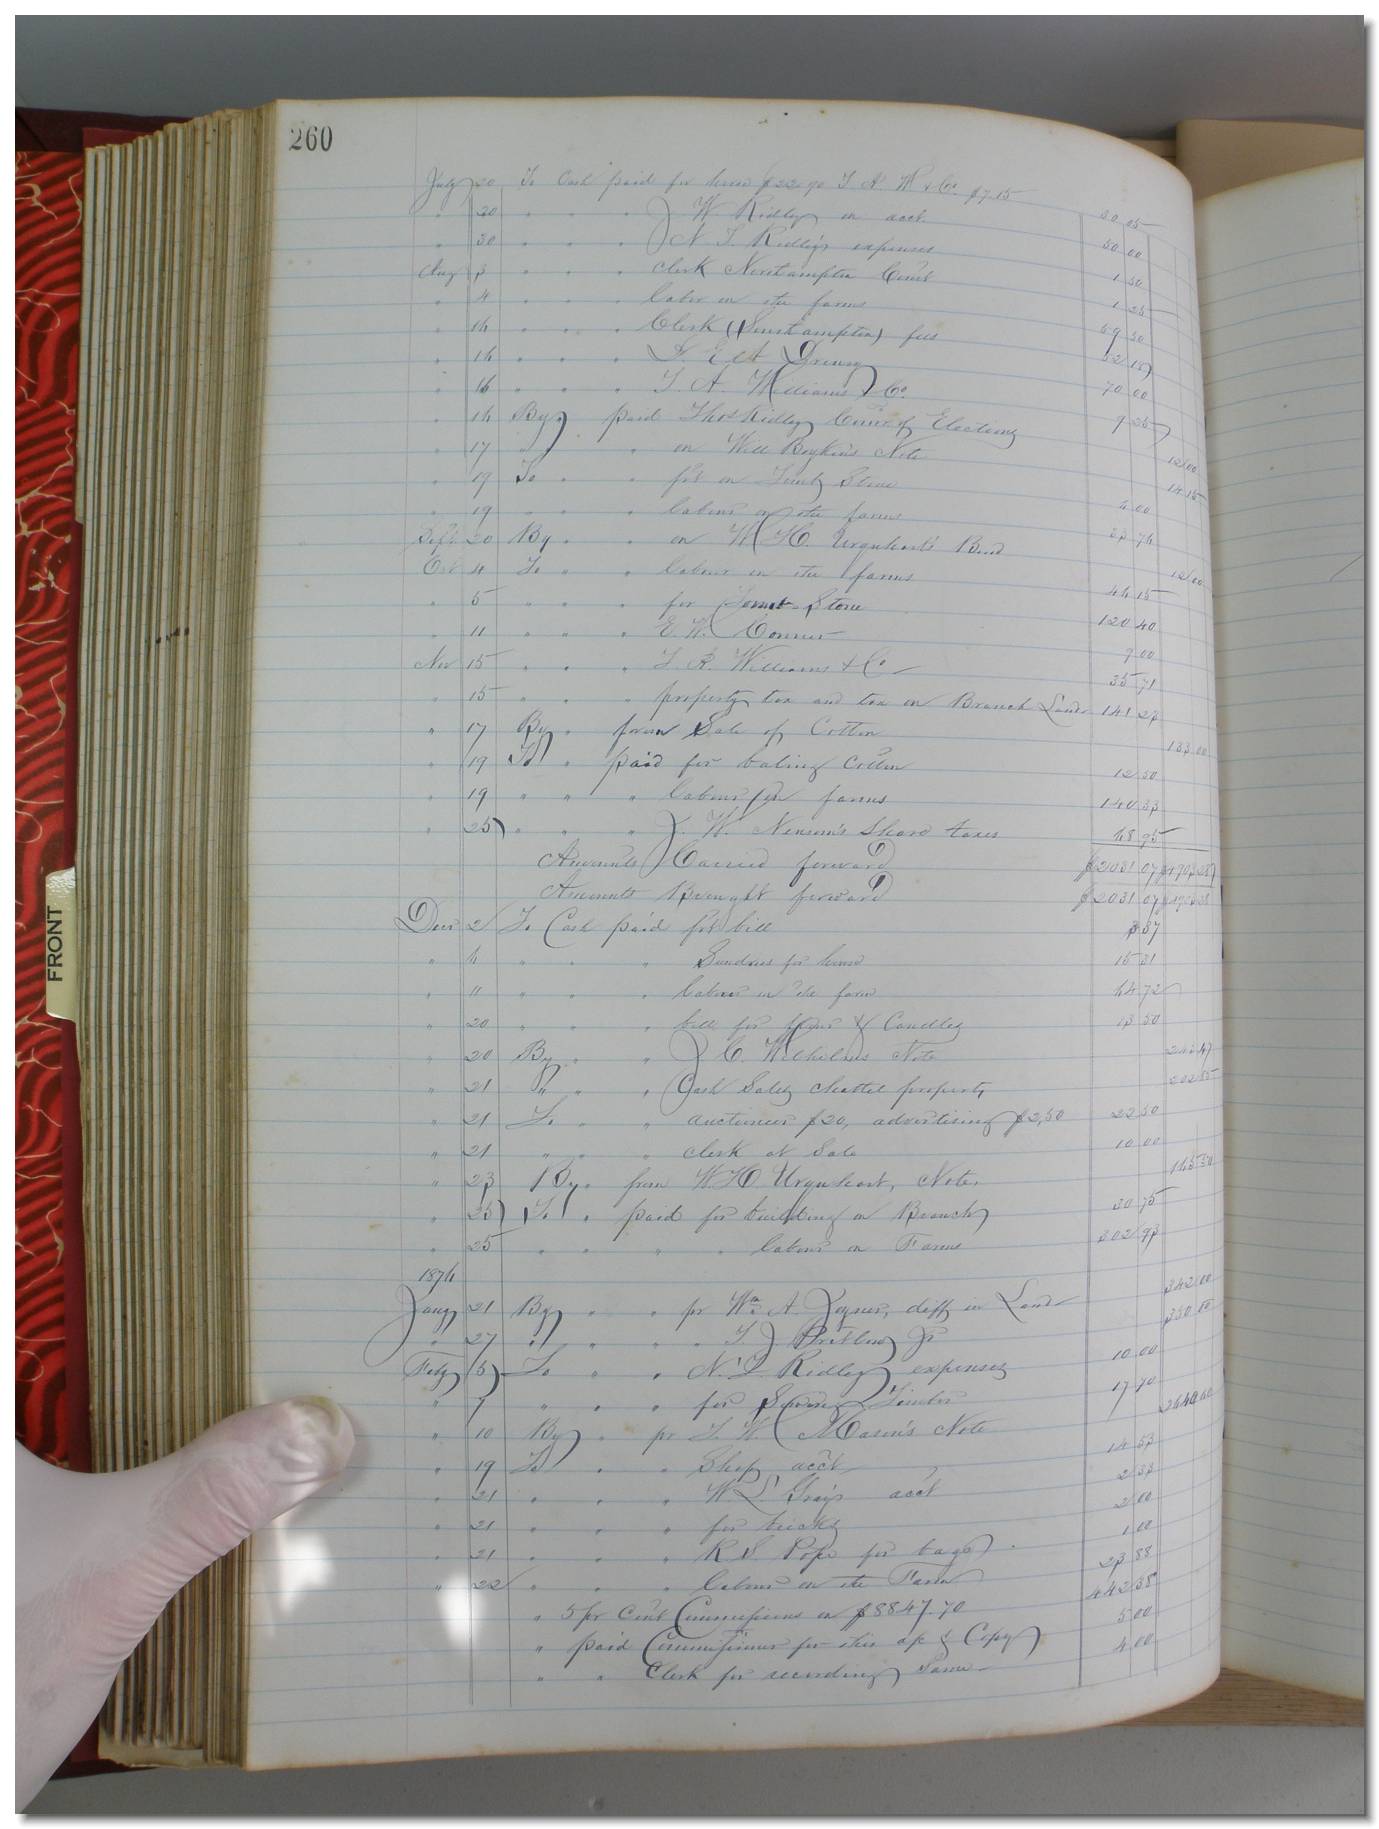 260
July 20 To Cash paid for horse $22.90 T A W & Co. $7.15 30 05
" 20 " " " J W. Ridley on acct. 50 00
" 30 " " " N T. Ridley's expenses 1 50
Aug 3 " " " Clerk Northampton Court 1 25
" 4 " " " labor on the farms 69 50
" 16 " " " Clerk (Southampton) fees 52 18
" 16 " " " Drewry 70 00
" 16 " " " T A. Williams & Co. 9 25
" 16 By " paid Thos Ridley Comr of Elections 12 00
" 17 " " on Will Boykin's Note 14 15
" 19 To " " frt on Tomb Stone 4 00
" 19 " " labour on the farms 23 76
Sept. 20 By " " on W. H. Urquhart's Bond 12 00
Oct 4 To " " labour on the farms 44 15
" 5 " " " for Tomb Stone 120 40
" 11 " " " E. W. Conner 9 00
Nov 15 " " " T. R. Williams & Co 35 71
" 15 " " " property tax and tax on Branch Land 141 23
" 17 By " from Sale of Cotton 133 00
" 19 To " paid for baling Cotton 12 50
" 19 " " " labour on farms 140 33
" 25 " " " J. W. share taxes 68 95
Amounts Carried forward $2031 07
Amounts Brought forward $2031 07
Decr 2 To Cash paid frt bill 3 37
" 4 " " Sundries for house 15 31
" 11 " " " labour on the farm 64 72
" 20 " " " bill for & Candles 13 50
" 20 By " " J. C. Note
" 21 " " " Cash Sales chattel property 202 85
" 21 To " " auctioneer $20, advertising $2,50 22 50
" 21 " " " clerk at Sale 10 00
" 23 By " from W. H Urquhart, Note,
" 25 To " paid for building on Branch 30 75
" 25 " " " labour on Farms 302 93
1874
Jany 21 By " " pr Wm A Joyner, diff, in Land 342 00
" 27 " " " " T J Pretlow Jr 350 00
Feby 5 To " " N. T. Ridley expenses 10 00
" 7 " " " for Timber 17 70
" 10 By " pr Mason's Note
" 19 To " " Shop acct 14 53
" 21 " " " W L Gray's acct 2 33
" 21 " " " for bricks 2 00
" 21 " " " R S. Pope for bags 1 00
" 22 " " " labour on the Farm 23 88
" 5 pr Cent Commissions on $8847.70 442 38
" paid Commissioner for this a/c & Copy 5 00
" " Clerk for recording Same 4 00
FRONT